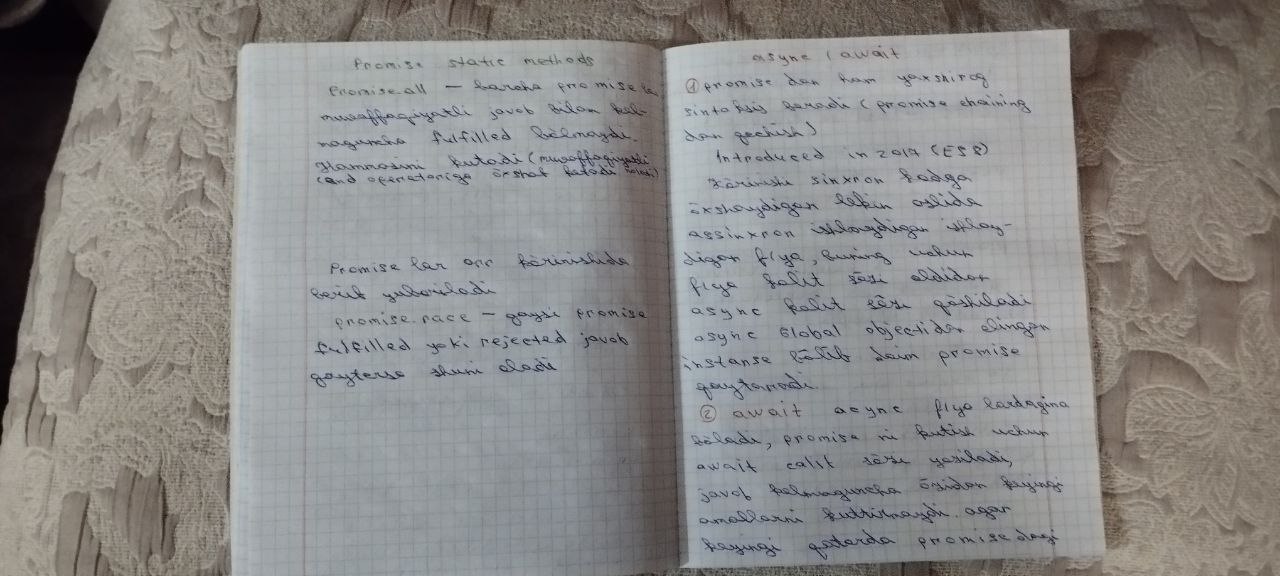 Promise static methods
Promise.all — barcha promise la
muvaffaqiyatli javob bilan kel-
maguncha fulfilled bölmaydi.
Hammasini kutadi (muvaffaqiyatli
(and operatoriga öxshab ketadi holati)
Promise lar arr körinishida
berib yuboriladi
promise.race — qaysi promise
fulfilled yoki rejected javob
qaytarsa shuni oladi
async / await
① promise dan ham yaxshiroq
sintaksis beradi (promise chaining
dan qochish)
Introduced in 2017 (ES8)
Körinishi sinxron kodga
öxshaydigan lekin aslida
assinxron ishlaydigan ishlay-
digan f/ya, buning uchun
f/ya kalit sözi oldidan
async kalit sözi qöshiladi
async Global objectidan olingan
instanse bölib doim promise
qaytaradi.
② await async f/ya lardagina
böladi, promise ni kutish uchun
await calit sözi yoziladi,
javob kelmaguncha özidan keyingi
amallarni kuttirmaydi. agar
keyingi qatorda promise dagi